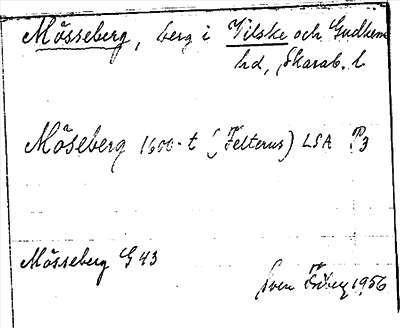 Mösseberg, berg i Vilske och Gudhem
hd, Skarab. l
Möseberg 1600-t (Felterus) LSA P3
Mösseberg G 43
Sven 1956